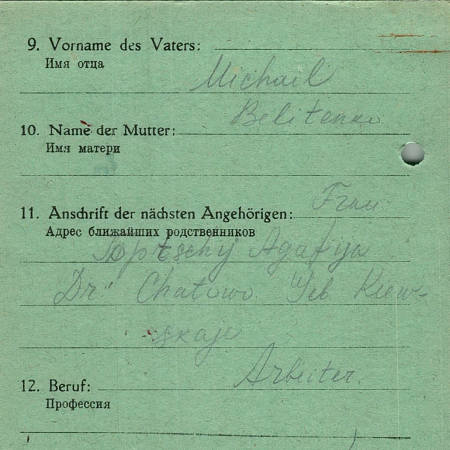 9. Vorname des Vaters:
Имя отца
Michail
Belitenko
10. Name der Mutter:
Имя матери
Frau
11. Anschrift der nächsten Angehörigen:
Адрес ближайших родственников
Agafija
Chatowo Geb Kiew-
skaja
Arbeiter.
12. Beruf:
Профессия